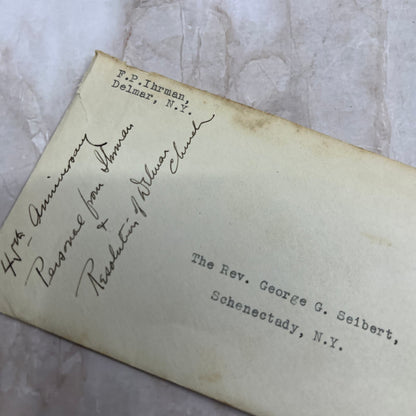 F.P.Ihrman,
Delmar, N.Y.
40th Anniversary
Personal from Ihrman
&
Resolution of Delmar
Church
The Rev. George G. Seibert,
Schenectady, N.Y.